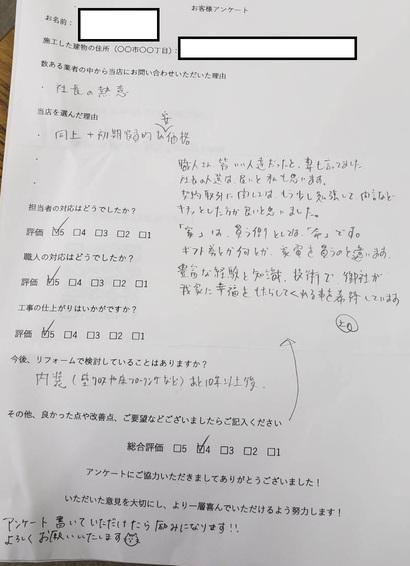 お客様アンケート
お名前:
施工した建物の住所(〇〇市〇〇丁目):
数ある業者の中から当店にお問い合わせいただいた理由
・社長の熱意
当店を選んだ理由
・同上 + 初期費用的な価格
・
・
職人さん 皆いい人達だったと、妻も言ってました
社長の人選は、良いと私も思います。
契約取引に関しては、もう少し勉強して、内訳など
キチッとした方が良いと思いました。
「家」は、買う側としては「命」です。
豊富な経験と知識、技術で、御社が
我家に幸福をもたらしてくれる事を期待しています
担当者の対応はどうでしたか?
評価 ☑5 □4 □3 □2 □1
職人の対応はどうでしたか?
評価 ☑5 □4 □3 □2 □1
工事の仕上がりはいかがですか?
評価 ☑5 □4 □3 □2 □1
今後、リフォームで検討していることはありますか?
内装(壁クロスや床フローリングなど)あと10年以上後。
その他、良かった点や改善点、ご要望などございましたらご記入ください
総合評価 □5 ☑4 □3 □2 □1
アンケートにご協力いただきましてありがとうございました!
いただいた意見を大切にし、より一層喜んでいただけるよう努力します!
アンケート書いていただけたら励みになります!!
よろしくお願いいたします